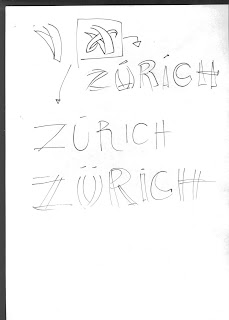 ZÚRİCH
ZÚRICH
ZÜRİCH